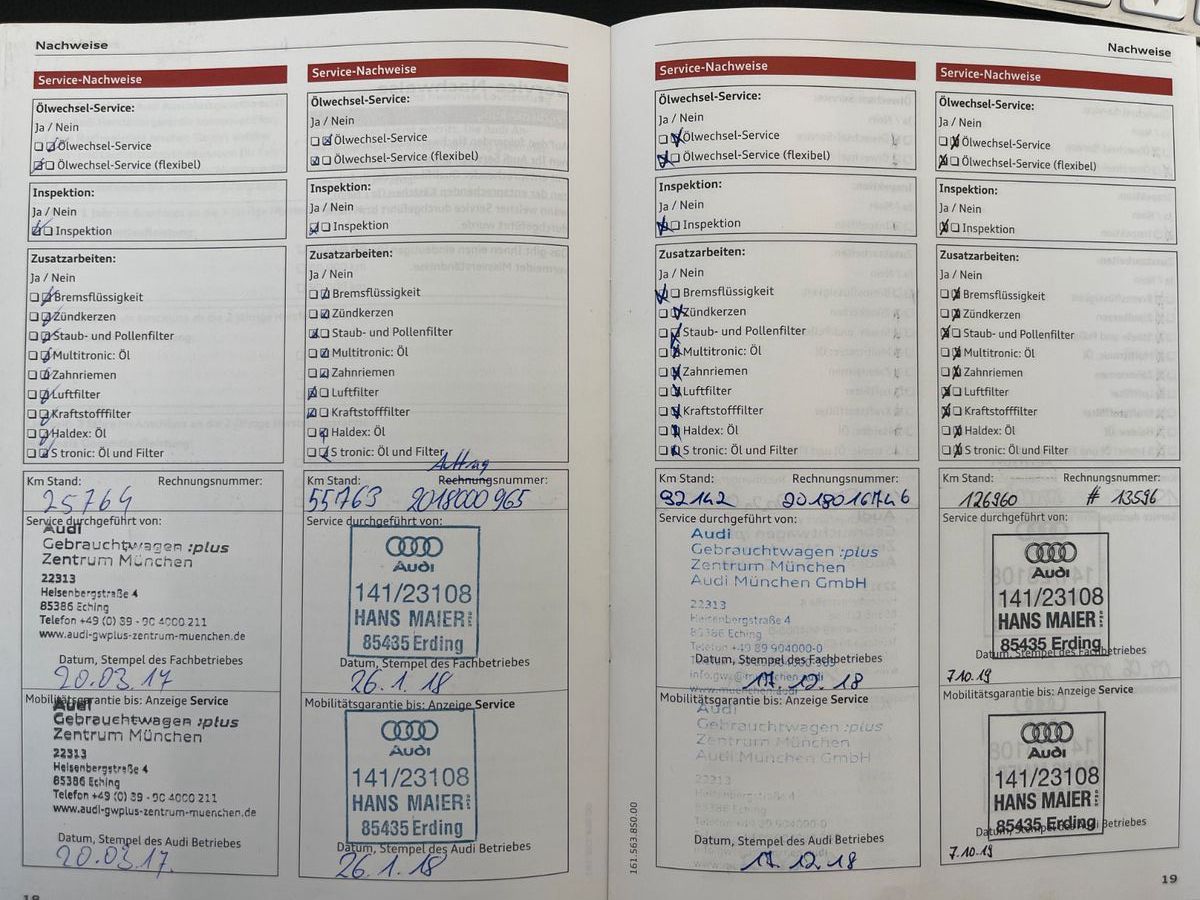 Nachweise
Service-Nachweise
Ölwechsel-Service:
Ja / Nein
Ölwechsel-Service
Ölwechsel-Service (flexibel)
Inspektion:
Ja / Nein
Inspektion
Zusatzarbeiten:
Ja / Nein
Bremsflüssigkeit
Zündkerzen
Staub- und Pollenfilter
Multitronic: Öl
Zahnriemen
Luftfilter
Kraftstofffilter
Haldex: Öl
S tronic: Öl und Filter
Km Stand: Rechnungsnummer:
25764
Service durchgeführt von:
Audi
Gebrauchtwagen :plus
Zentrum München
22313
Heisenbergstraße 4
85386 Eching
Telefon +49 (0) 89 - 90 4000 211
www.audi-gwplus-zentrum-muenchen.de
Datum, Stempel des Fachbetriebes
20.03.17
Mobilitätsgarantie bis: Anzeige Service
Audi
Gebrauchtwagen :plus
Zentrum München
22313
Heisenbergstraße 4
85386 Eching
Telefon +49 (0) 89 - 90 4000 211
www.audi-gwplus-zentrum-muenchen.de
Datum, Stempel des Audi Betriebes
20.03.17.
18
Service-Nachweise
Ölwechsel-Service:
Ja / Nein
Ölwechsel-Service
Ölwechsel-Service (flexibel)
Inspektion:
Ja / Nein
Inspektion
Zusatzarbeiten:
Ja / Nein
Bremsflüssigkeit
Zündkerzen
Staub- und Pollenfilter
Multitronic: Öl
Zahnriemen
Luftfilter
Kraftstofffilter
Haldex: Öl
S tronic: Öl und Filter
Auftrag
Km Stand: Rechnungsnummer:
55763 2018000965
Service durchgeführt von:
Audi
141/23108
HANS MAIER
85435 Erding
Datum, Stempel des Fachbetriebes
26.1.18
Mobilitätsgarantie bis: Anzeige Service
Audi
141/23108
HANS MAIER
85435 Erding
Datum, Stempel des Audi Betriebes
26.1.18
Service-Nachweise
Ölwechsel-Service:
Ja / Nein
Ölwechsel-Service
Ölwechsel-Service (flexibel)
Inspektion:
Ja / Nein
Inspektion
Zusatzarbeiten:
Ja / Nein
Bremsflüssigkeit
Zündkerzen
Staub- und Pollenfilter
Multitronic: Öl
Zahnriemen
Luftfilter
Kraftstofffilter
Haldex: Öl
S tronic: Öl und Filter
Km Stand: Rechnungsnummer:
92142 2018016746
Service durchgeführt von:
Audi
Gebrauchtwagen :plus
Zentrum München
Audi München GmbH
22313
Heisenbergstraße 4
85386 Eching
Telefon +49 89 904000-0
Datum, Stempel des Fachbetriebes
17.12.18
Mobilitätsgarantie bis: Anzeige Service
Audi
Gebrauchtwagen :plus
Zentrum München
Audi München GmbH
22313
Heisenbergstraße 4
85386 Eching
Datum, Stempel des Audi Betriebes
17.12.18
161.563.850.00
Nachweise
Service-Nachweise
Ölwechsel-Service:
Ja / Nein
Ölwechsel-Service
Ölwechsel-Service (flexibel)
Inspektion:
Ja / Nein
Inspektion
Zusatzarbeiten:
Ja / Nein
Bremsflüssigkeit
Zündkerzen
Staub- und Pollenfilter
Multitronic: Öl
Zahnriemen
Luftfilter
Kraftstofffilter
Haldex: Öl
S tronic: Öl und Filter
Km Stand: Rechnungsnummer:
126960 # 13596
Service durchgeführt von:
Audi
141/23108
HANS MAIER
85435 Erding
Datum, Stempel des Fachbetriebes
7.10.19
Mobilitätsgarantie bis: Anzeige Service
Audi
141/23108
HANS MAIER
85435 Erding
Datum, Stempel des Audi Betriebes
7.10.19
19